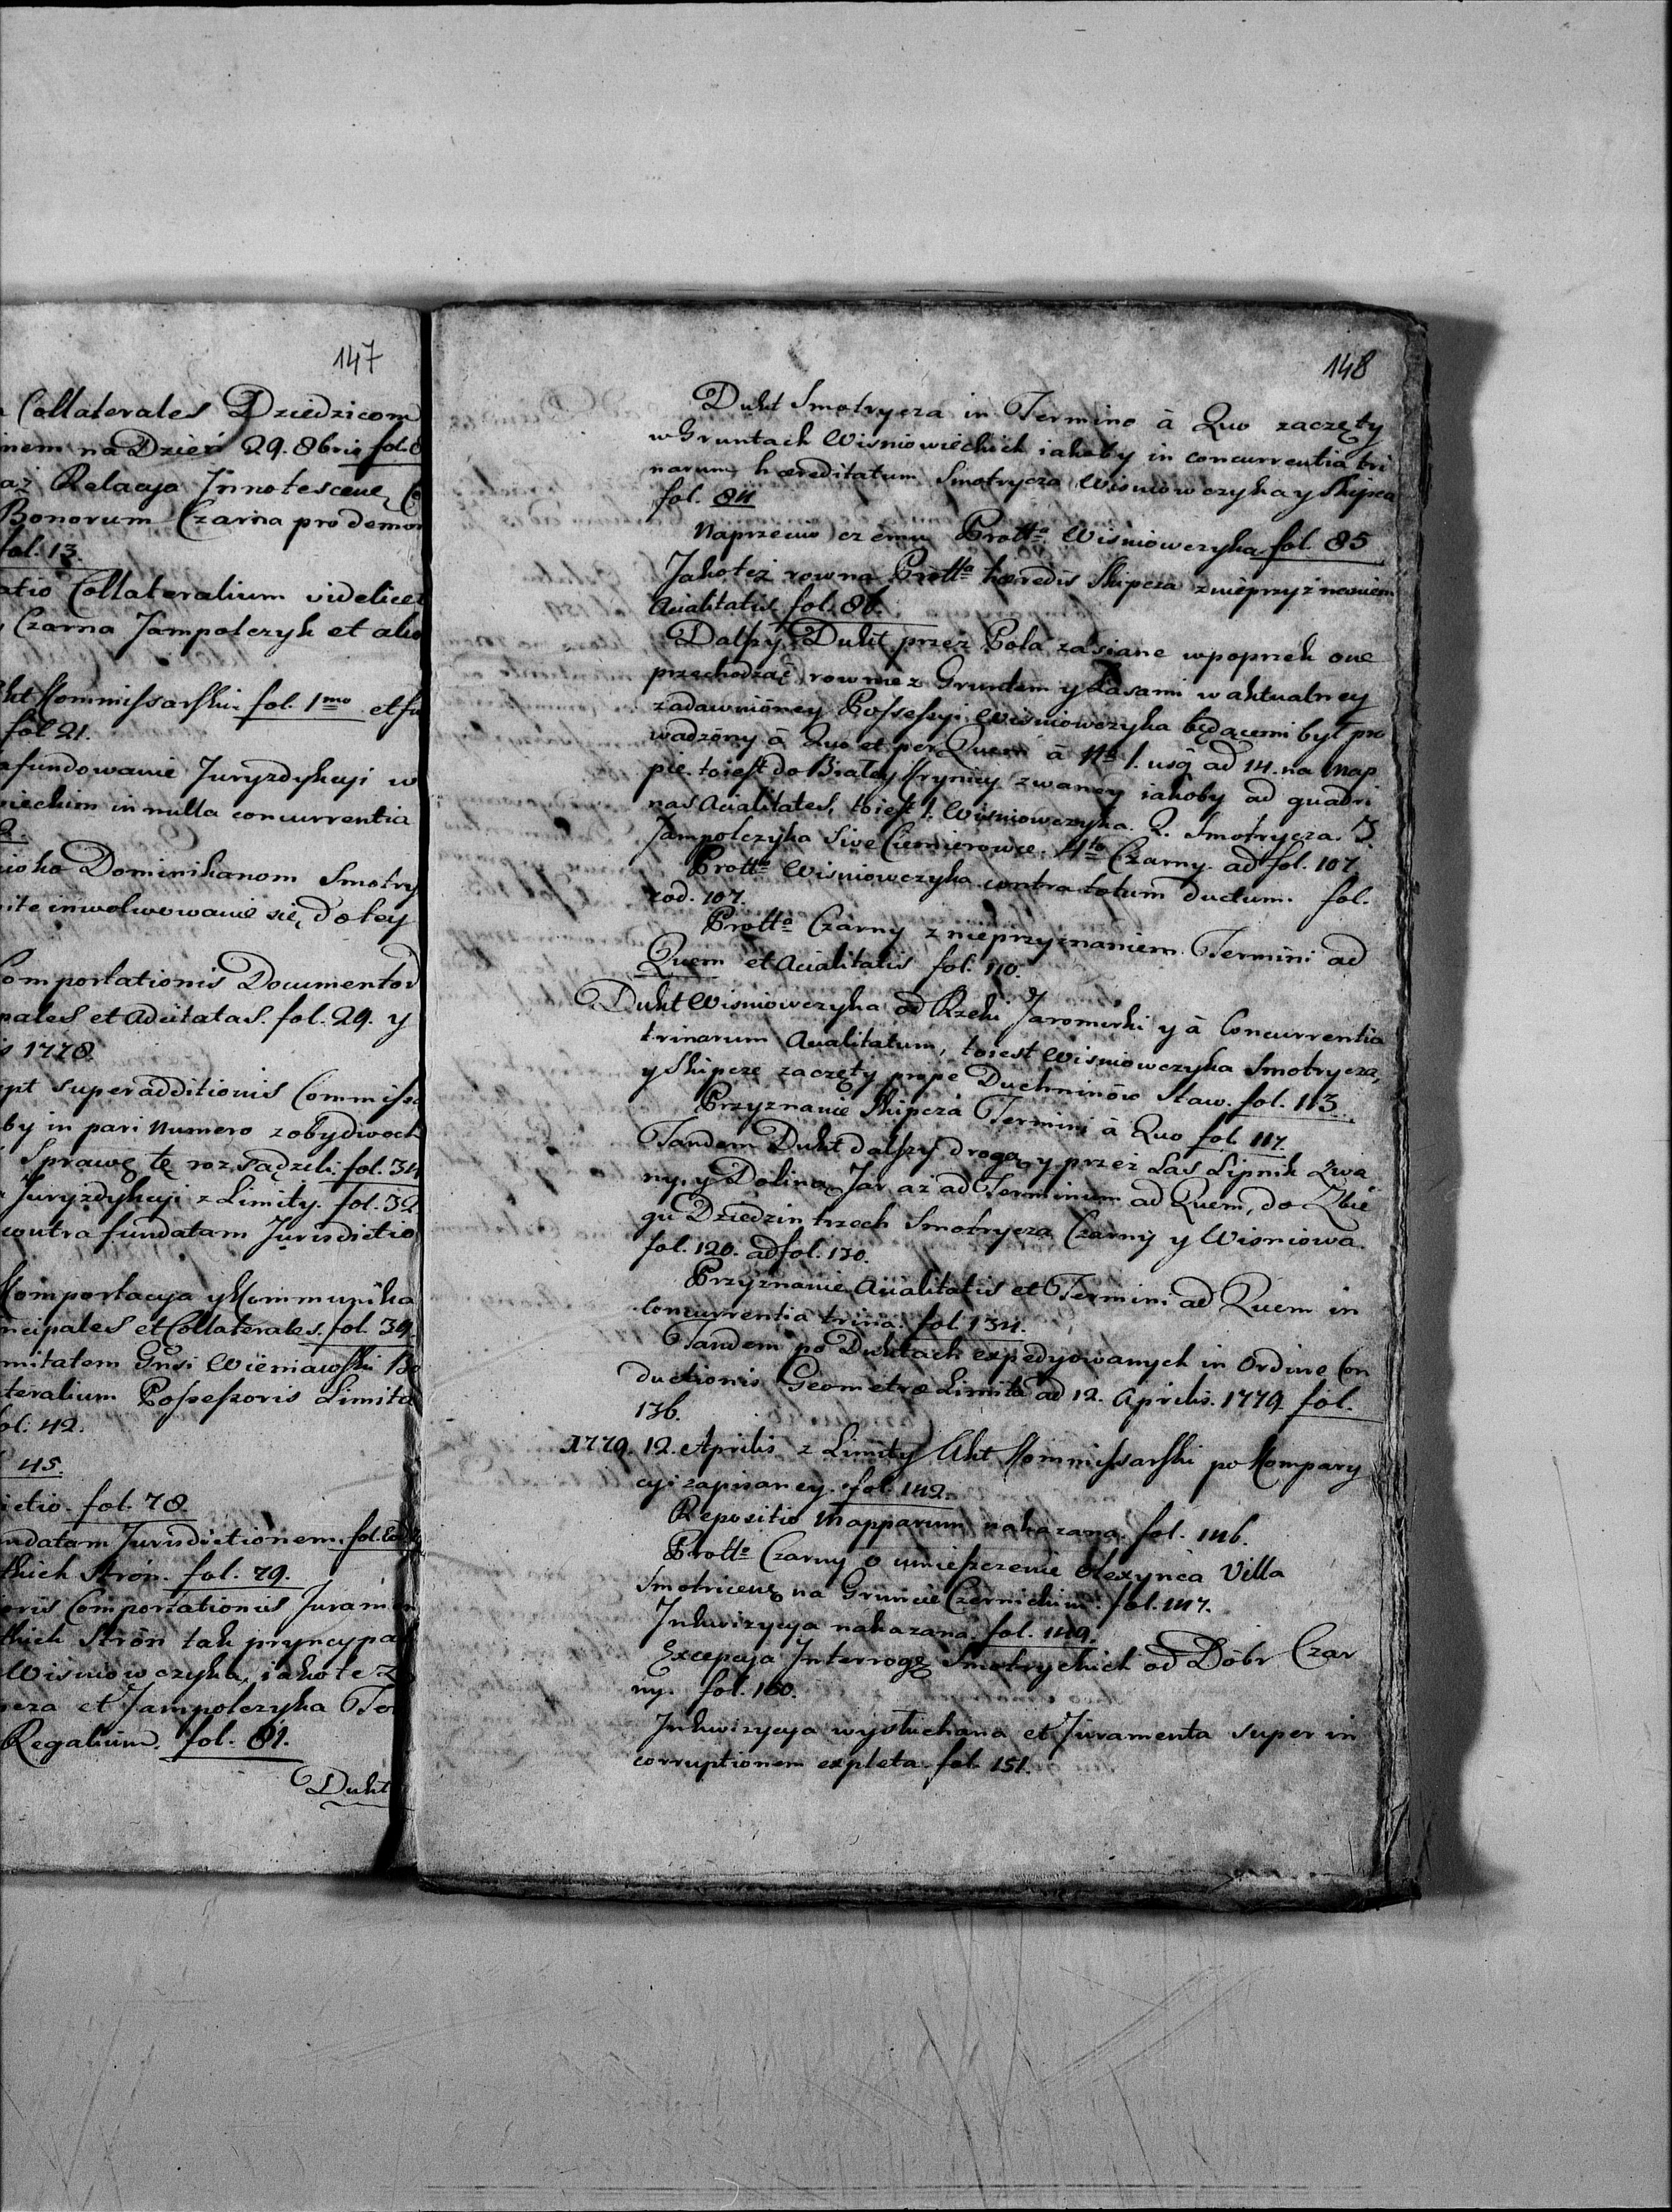 147
Collaterales Dziedzicom
inem na Dzień 29. 8bris fol. 8
aż Relacya Innotescenc
Bonorum Czarna pro demon
fol. 13.
atio Collateralium videlicet
Czarna Jampolczyk et alio
Akt Kommissarski fol. 1mo et fu
fol. 21.
afundowanie Juryzdykcyi w
wieckim in nulla concurrentia
2.
Dominikanom Smotry
inwolwowanie się do tey
omportationis Documentor
pales et Acietatas. fol. 29. y
1778.
pt superadditionis Commiss
by in pari numero z obydwoch
Sprawę tę rozsądzili fol. 34
Juryzdykcyi z Limity. fol. 32
contra fundatam Jurisdictio
Komportacya y Kommunika
ncipales et Collaterales. fol. 39.
mitatem Gnsi Wieniawski
teralium Possessoris Limita
ol. 42.
45.
ictio. fol. 78.
ndatam Jurisdictionem. fol.
tkich Stron. fol. 79.
oris Comportationis Juramen
tkich Strón tak pryncypal
Wisniowczyka, iakoteż
pcza et Jampolczyka
Regalium. fol. 81.
Dukt
148
Dukt Smotrycza in Termino à Quo zaczęty
w Gruntach Wisniowieckich iakoby in concurrentia tri
narum hæreditatum Smotrycza Wisniowczyka y Skipcza
fol. 84
Naprzeciw czemu Protta Wisniowczyka fol. 85
Jakoteż rowna Protta hæredis Skipcza z nieprzyznaniem
Acialitatis fol. 86.
Dalszy Dukt przez Pola zasiane w poprzek one
przechodząc rownież Gruntem y Lasami w aktualney
zadawnioney Possessyi Wisniowczyka będącemi był pro
wadzony à Quo et per Quem à Nro 1. usq ad 14. na Map
pie. toiest do Białey Krynicy zwaney iakoby ad quadri
nas Acialitates, toiest 1. Wisniowczyka. 2. Smotrycza. 3.
Jampolczyka sive Ciemierowce. 4to Czarny. ad fol. 107
Protta Wisniowczyka contra totum ductum. fol.
eod. 107.
Protta Czarny z nieprzyznaniem Termini ad
Quem et Acialitatis fol. 110.
Dukt Wisniowczyka od Rzeki Jaromirki y à Concurrentia
trinarum Acialitatum, toiest Wisniowczyka Smotrycza,
y Skipcze zaczęty prope Duchninów Staw. fol. 113.
Przyznanie Skipcza Termini à Quo fol. 117.
Tandem Dukt dalszy drogą y przez Las Lipnik zwa
ny, y Doliną Jar aż ad Terminum ad Quem, do Zbie
gu Dziedzin trzech Smotrycza Czarny y Wisniowa.
fol. 120. ad fol. 130.
Przyznanie Acialitatis et Termini ad Quem in
Concurrentia trina. fol. 134.
Tandem po Duktach expedyowanych in Ordine Con
ductionis Geometræ Limita ad 12. Aprilis. 1779. fol.
136.
1779. 12. Aprilis z Limity Akt Kommissarski po Kompary
cyi zapisaney. fol. 142.
Repositio Mapparum nakazana. fol. 146.
Protta Czarny o umieszczenie Olexynca Villa
Smotricens na Gruncie Czernickim. fol. 147.
Inkwizycya nakazana. fol. 149.
Excepcya Interrog Smotryckich od Dóbr Czar
ny. fol. 150.
Inkwizycya wysłuchana et Juramenta super in
corruptionem expleta. fol. 151.